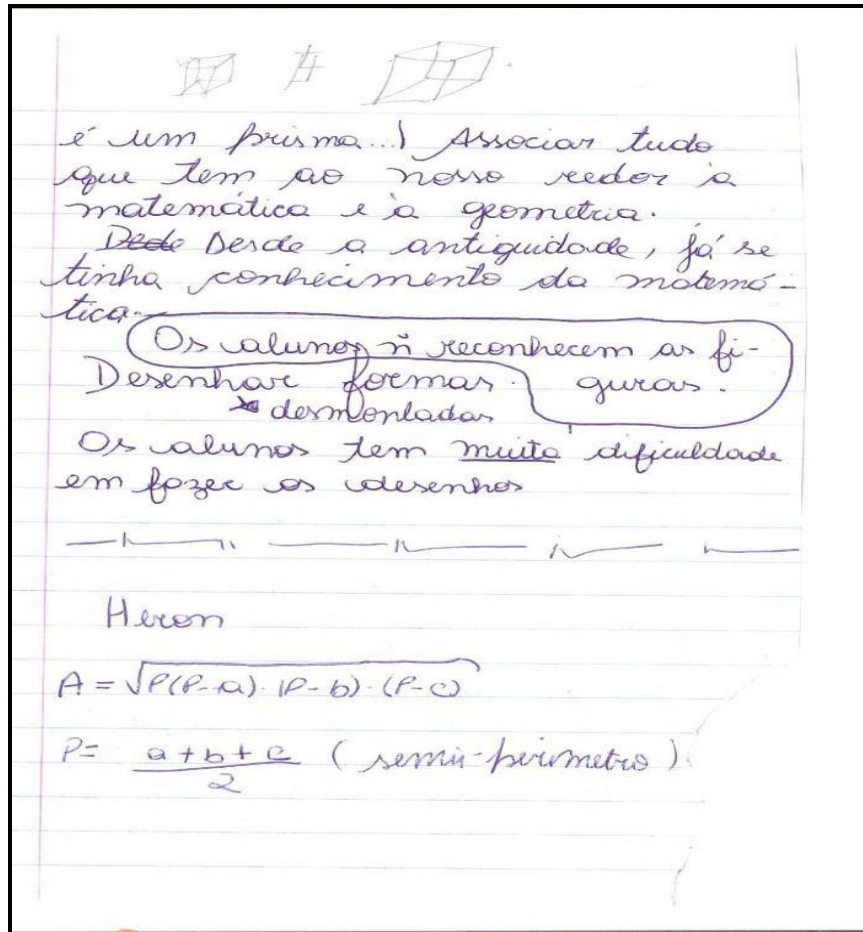 é um prisma...) Associar tudo
que tem ao nosso redor à
matemática e à geometria.
Dede Desde a antiguidade, já se
tinha conhecimento da matemá-
tica.
Os alunos ñ reconhecem as fi-
guras.
Desenhar formas.
desmontadas
Os alunos tem muita dificuldade
em fazer os desenhos
Heron
A = √P(P-a)·(P-b)·(P-c)
P= a+b+c / 2 (semi-perimetro)